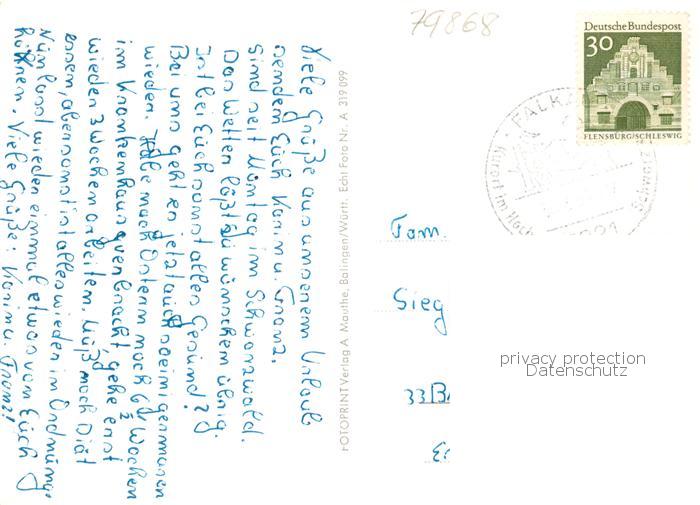 79868
Deutsche Bundespost
30
FLENSBURG/SCHLESWIG
FALKA
Kurort im Hoch
Schwarz
Viele Grüße aus unserem Urlaub
senden Euch Karin u. Franz.
Sind seit Montag im Schwarzwald.
Das Wetter läßt zu wünschen übrig.
Ist bei Euch sonst alles Gesund?
Bei uns geht es jetzt auch so einigermasen
wieder. Habe nach Ostern noch 6 Wochen
im Krankenhaus verbracht, gehe erst
wieder 3 Wochen arbeiten. Muß noch Diät
essen, aber sonst ist alles wieder in Ordnung.
Nun lasst wieder einmal etwas von Euch
hören. Viele Grüße: Karin u. Franz!
FOTOPRINT Verlag A. Mauthe, Balingen/Württ. Echt Foto Nr. A 319 099
Fam.
Sieg
33 B
privacy protection
Datenschutz